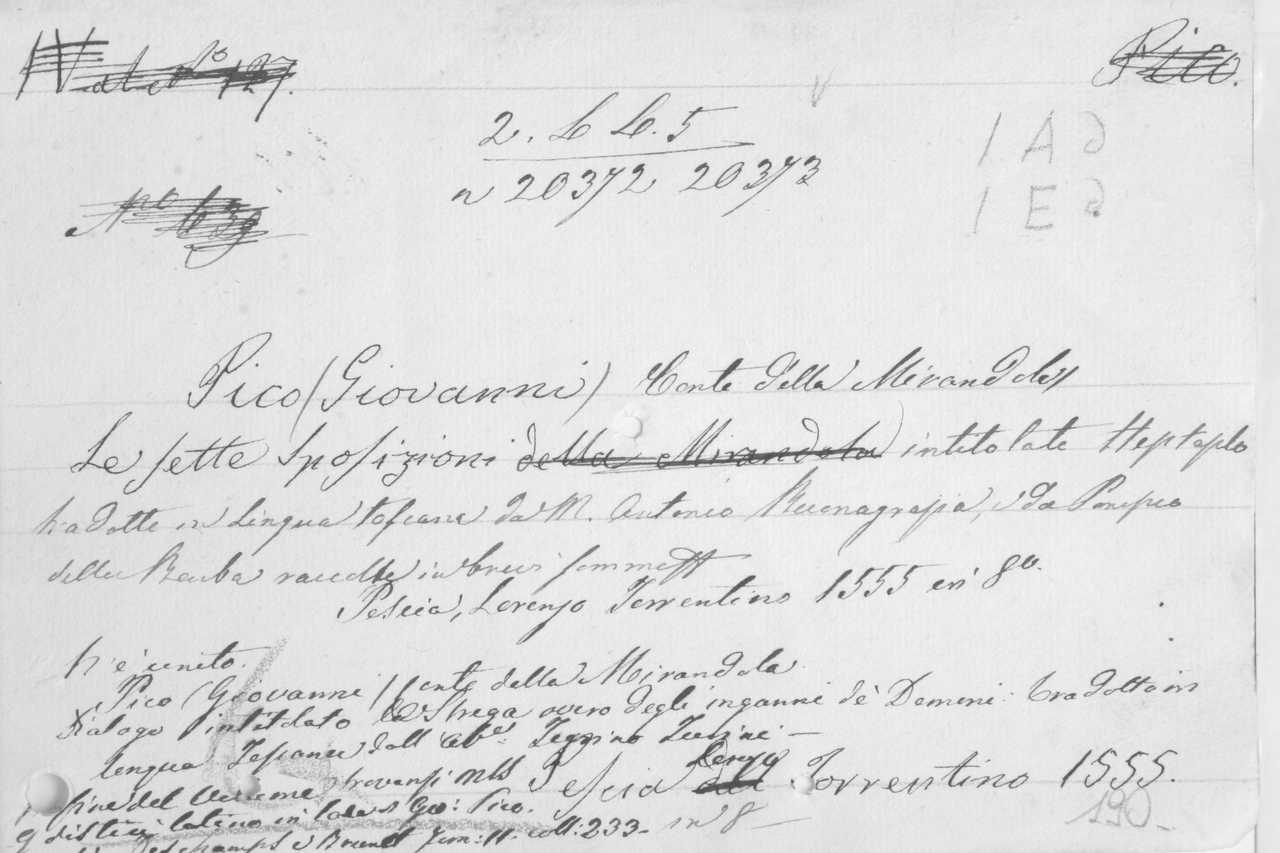 Pico.
2. L L. 5
n 20372 20373
1 A d
1 E d
Pico (Giovanni) Conte della Mirandola
Le sette Sposizioni della Mirandola intitolate Heptaplo
tradotte in lingua toscana da M. Antonio Buonagrazia, e da Pompeo
della Barba raccolte in brevi somme
Pescia, Lorenzo Torrentino 1555 in 8º.
Vi è unito.
Pico (Giovanni) Conte della Mirandola
Dialogo intitolato la Strega overo degli inganni de' Demoni: tradotto in
lengua Toscana dall' Abe: Turino Turini —
Pescia Lorenzo Torrentino 1555.
fine del Volume trovansi mss
9 distici latino in lode Gio: Pico. in 8 —
Brunet Tom: 11. coll: 233-
190 -